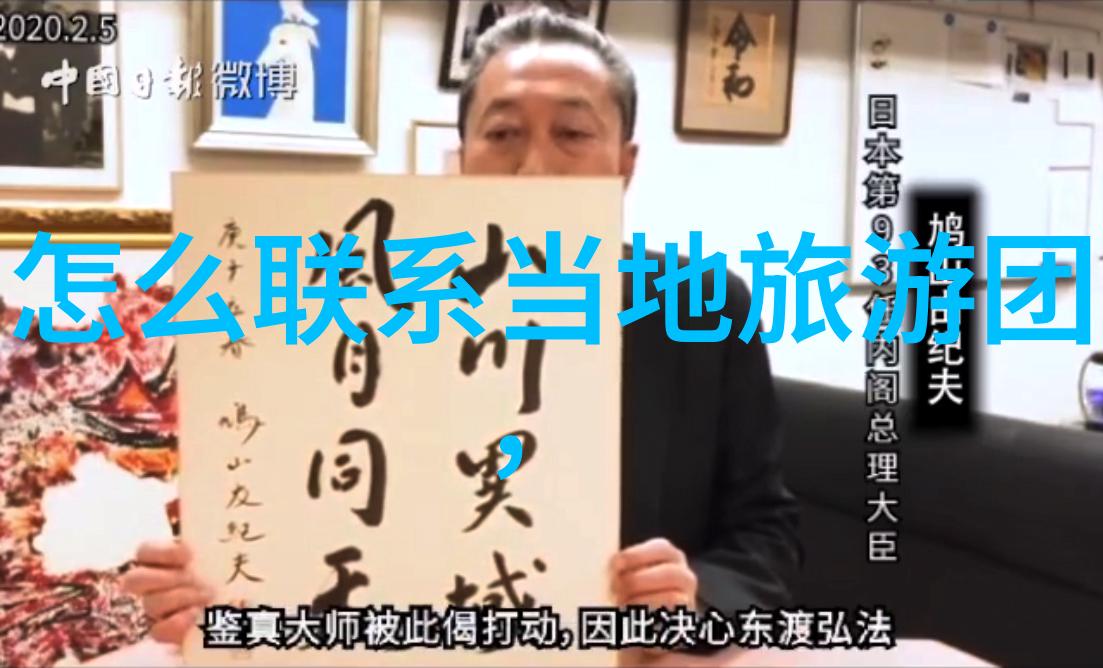 2020.2.5
中國日報微博
令和
怎么联系当地旅游团
，
日本第93任内阁总理大臣
鸠山友纪夫
山川異域
風月同天
庚子年春
鳩山友紀夫
鉴真大师被此偈打动,因此决心东渡弘法